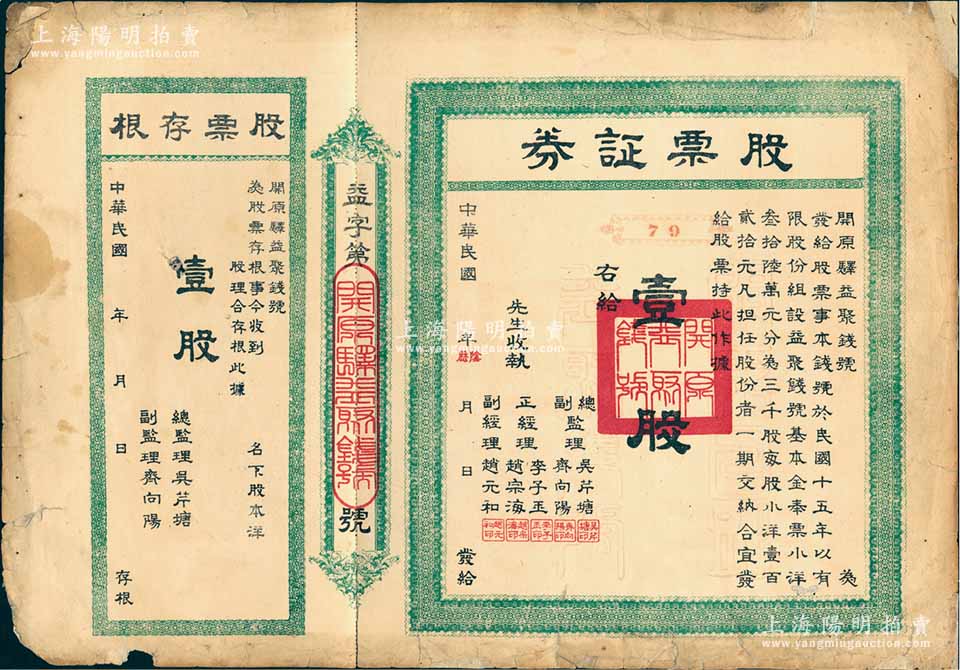 上海陽明拍賣
www.yangmingauction.com
股票証券
開原驛益聚錢號 為
發給股票事本錢號於民國十五年以有
限股份組設益聚錢號基本金奉票小洋
叁拾陸萬元分為三千股每股小洋壹百
貳拾元凡担任股份者一期交納合宜發
給股票持此作據
79
壹股
開原益聚錢號
右給
先生收執
總監理 吳芹塘
副監理 齊向陽
正經理 李子玉
趙宗海
副經理 趙元和
中華民國 年 陰歷 月 日 發給
益字第 號
開原驛益聚錢號
股票存根
開原驛益聚錢號
為股票存根事今收到
名下股本洋
股理合存根此據
壹股
總監理吳芹塘
副監理齊向陽
中華民國 年 月 日 存根
上海陽明拍賣
www.yangmingauction.com
上海陽明拍賣
www.yangmingauction.com